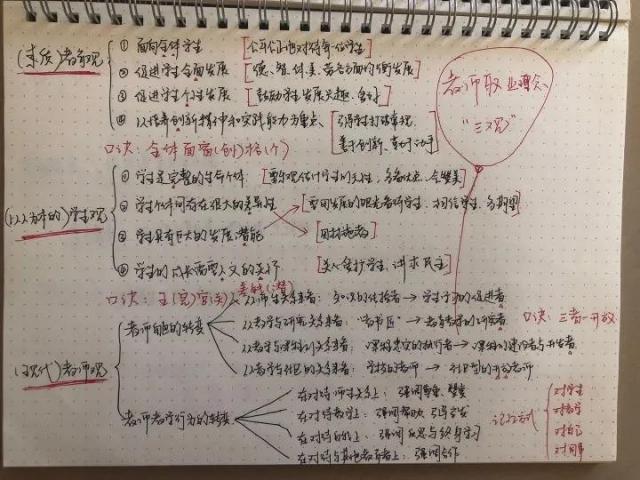 教师职业理念
"三观"
(素质)教育观
① 面向全体学生 [公平公正地对待每一位学生]
② 促进学生全面发展 [德、智、体、美、劳各方面均衡发展]
③ 促进学生个性发展 [鼓励学生发展兴趣、爱好]
④ 以培养创新精神和实践能力为重点 [引导学生打破常规、善于创新、动手]
口诀：全体面面(创)格(个)
(以人为本的)学生观
① 学生是完整的生命个体：
② 学生个体间存在很大的差异性
③ 学生具有巨大的发展潜能
[要用发展的眼光看待学生、相信学生、多期望]
[因材施教]
④ 学生的成长需要人文的关怀 [关心爱护学生、讲求民主]
口诀：
(现代)教师观
教师角色的转变
从师生关系来看：知识的传授者→学习的促进者
从教学与研究关系来看："教书匠"→教育教学的研究者
从教学与课程的关系来看：课程忠实的执行者→课程的建设者与开发者
从教学与社区的关系来看：学校的教师→社区型的开放教师
口诀：三者一开放
教师教学行为的转变
在对待师生关系上：强调尊重、赞赏
在对待教学上：强调帮助、引导
在对待自我上：强调反思与终身学习
在对待与其他教育者上：强调合作
对学生
对教学
对自己
对同事